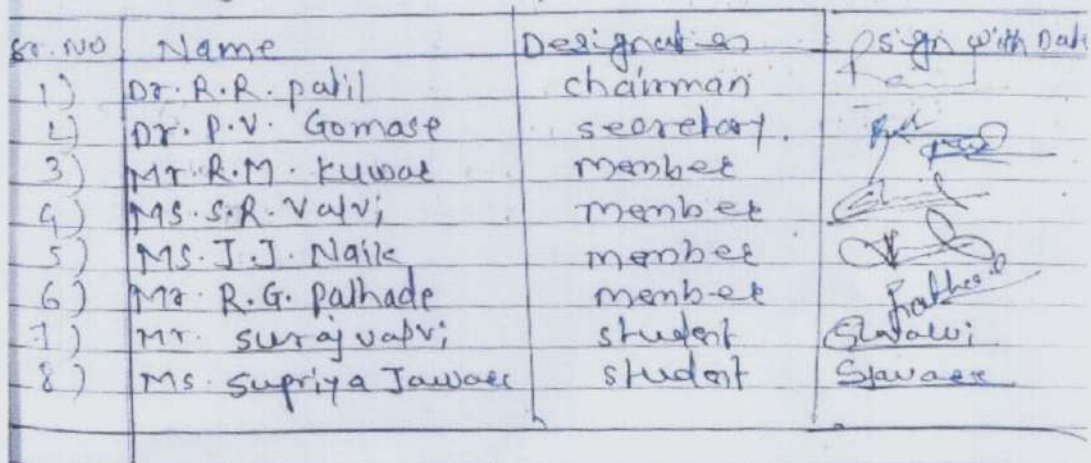 Sr. No Name Designation sign with Date
1) Dr. R.R. patil chairman
2) Dr. P.V. Gomase secretary.
3) Mr. R.M. Kuwar member
4) Ms. S.R. Valvi member
5) Ms. J.J. Naik member
6) Mr. R.G. Pathade member
7) Mr. Suraj valvi student
8) Ms. Supriya Jawaee student